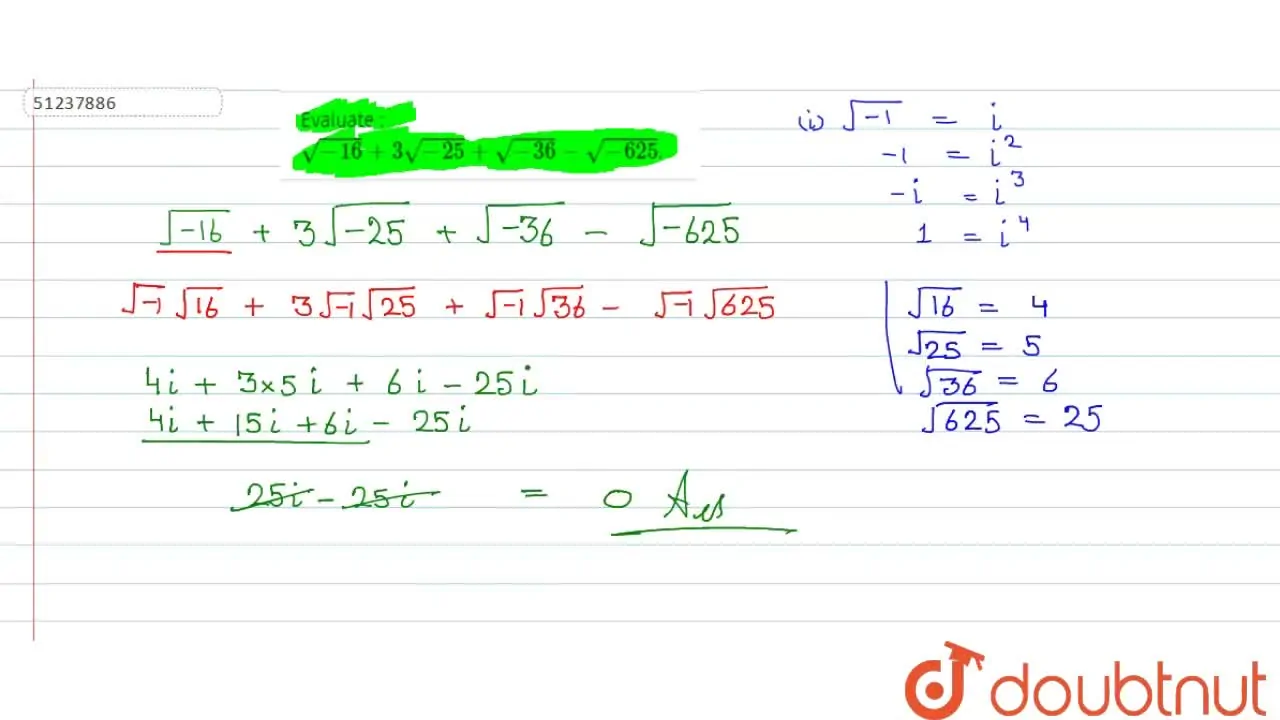 51237886
Evaluate :
√-16 + 3√-25 + √-36 - √-625.
√-16 + 3√-25 + √-36 - √-625
√-1 √16 + 3√-1 √25 + √-1 √36 - √-1 √625
4i + 3×5i + 6i - 25i
4i + 15i + 6i - 25i
25i - 25i = 0 Ans
(i) √-1 = i
-1 = i²
-i = i³
1 = i⁴
√16 = 4
√25 = 5
√36 = 6
√625 = 25
doubtnut